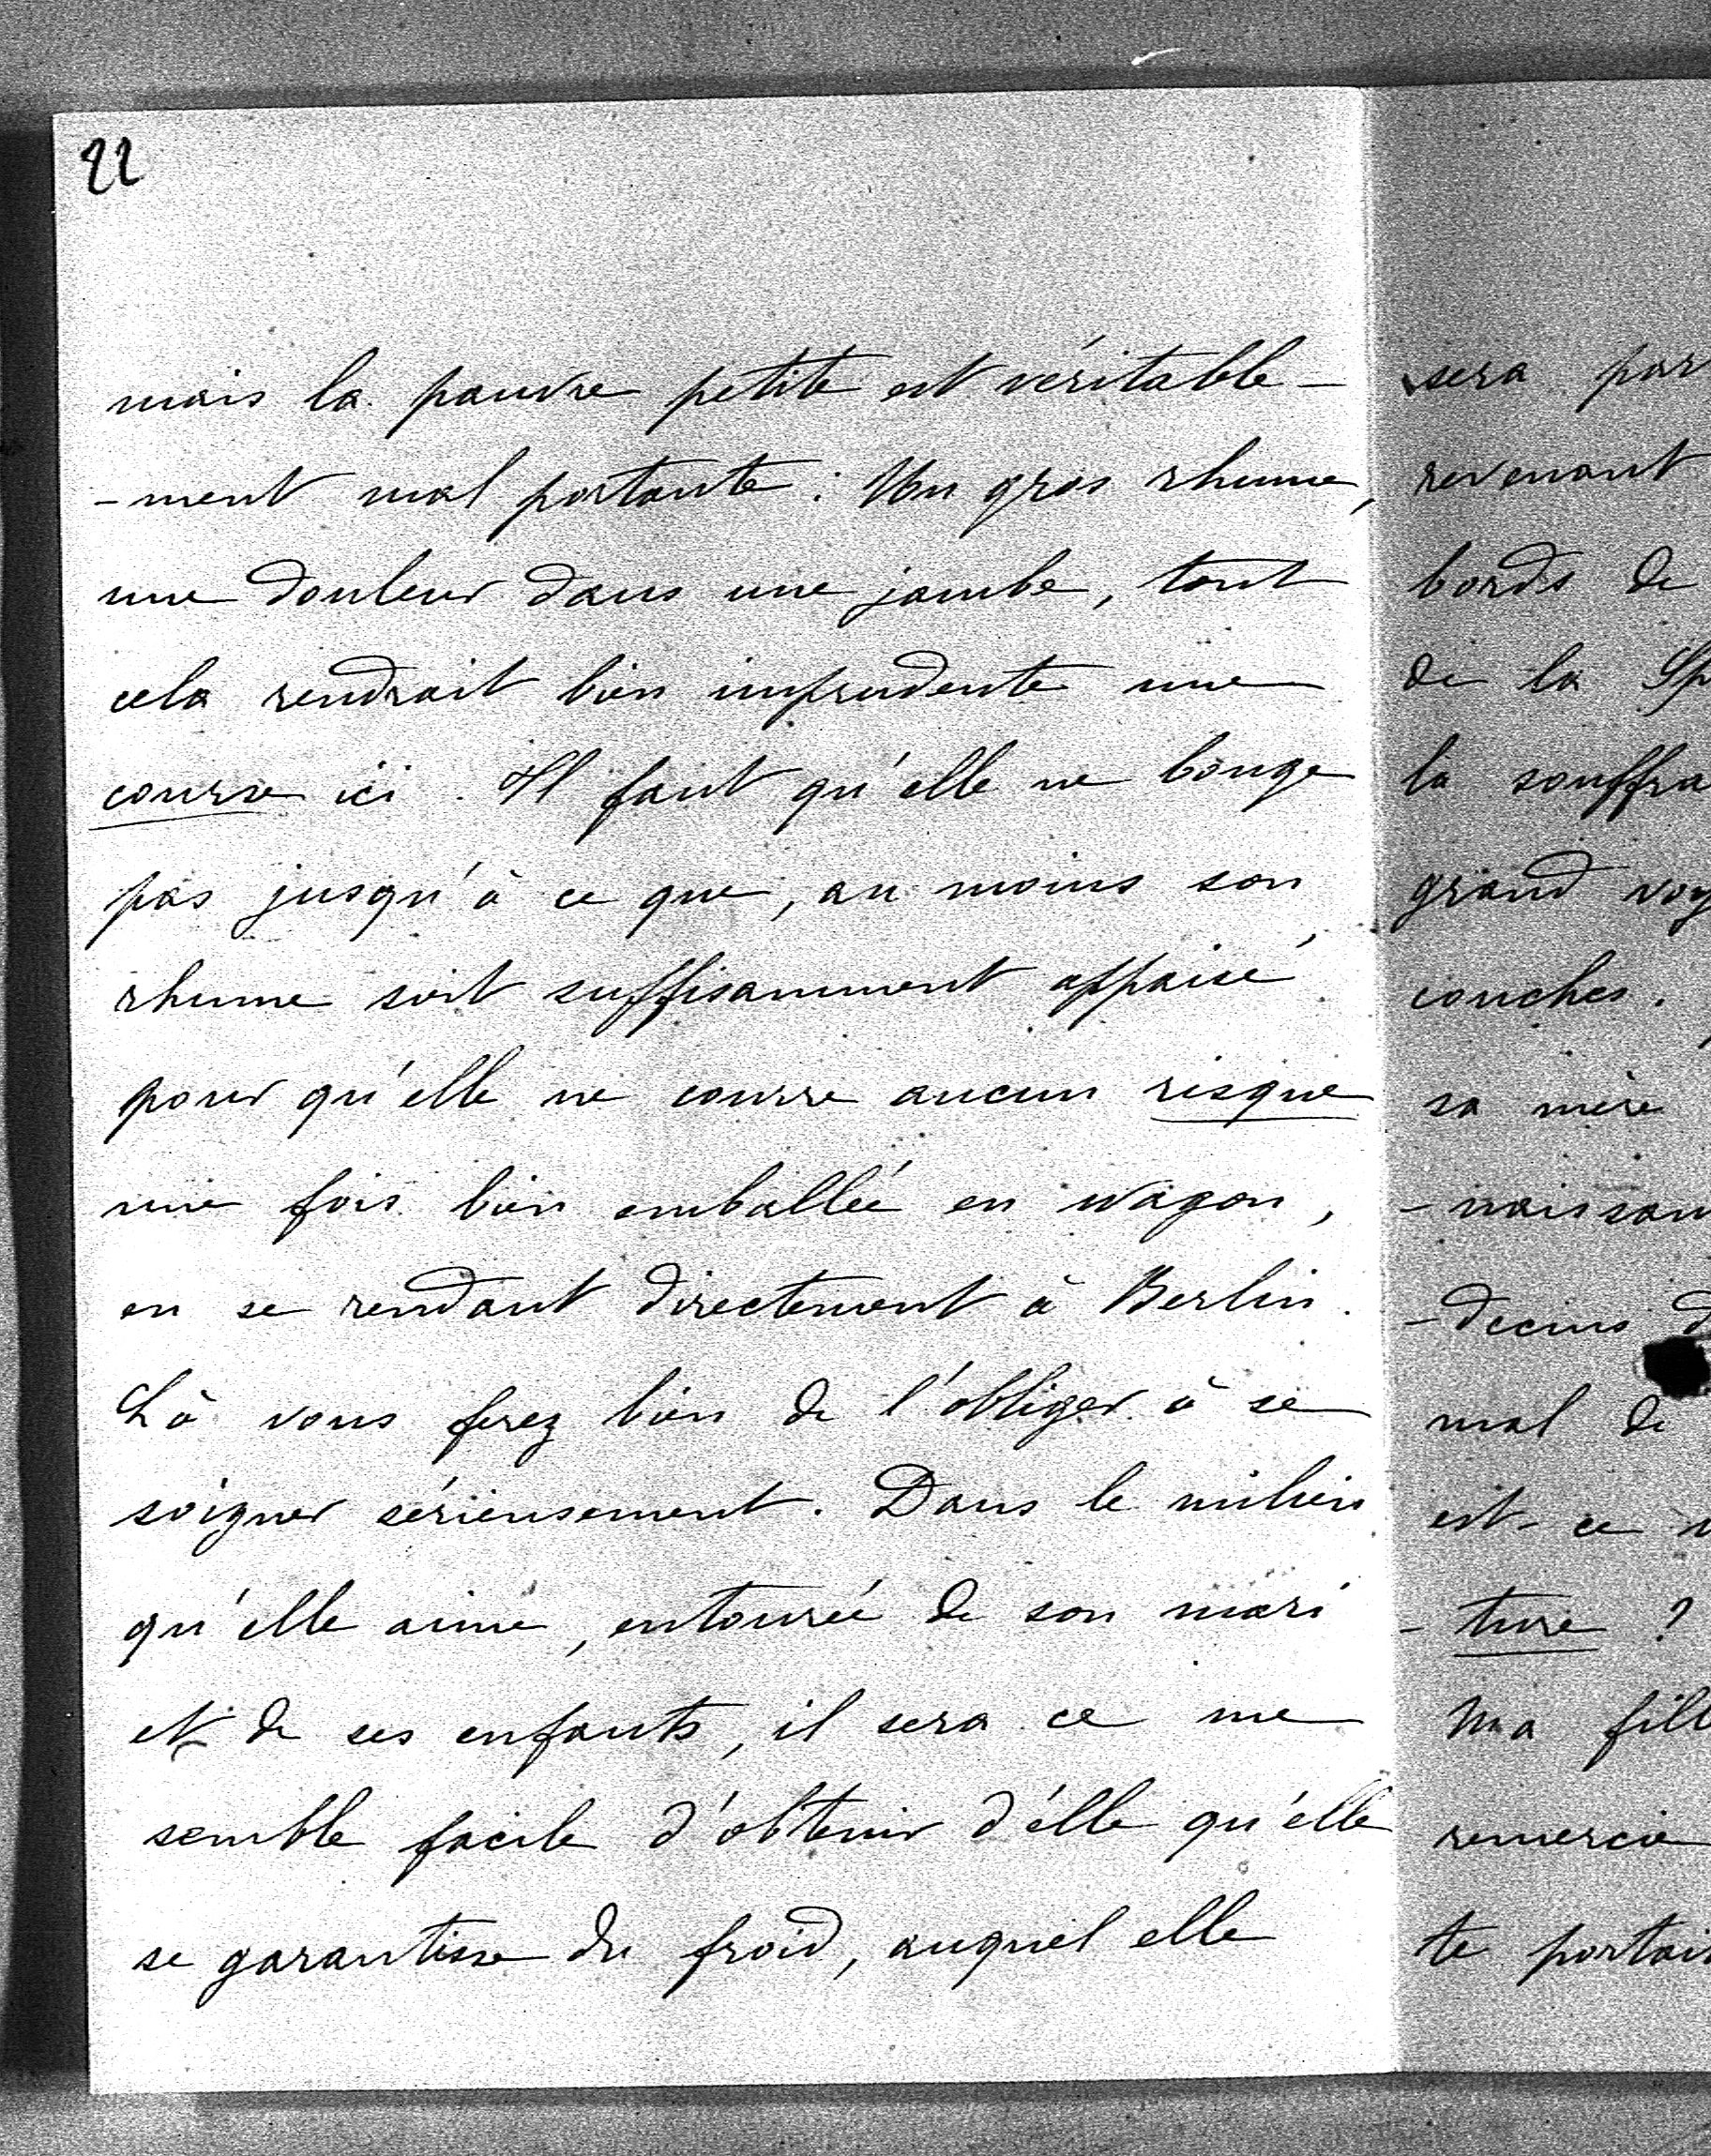 22
mais la pauvre petite est véritable-
-ment mal portante : Un gros rhume,
une douleur dans une jambe, tout
cela rendrait bien imprudente une
course ici. Il faut qu'elle ne bouge
pas jusqu'à ce que, au moins son
rhume soit suffisamment appaisé,
pour qu'elle ne courre aucun risque
une fois bien emballée en wagon,
en se rendant directement à Berlin.
Là vous ferez bien de l'obliger à se
soigner sérieusement. Dans le milieu
qu'elle aime, entourée de son mari
et de ses enfants, il sera ce me
semble facile d'obtenir d'elle qu'elle
se garantisse du froid, auquel elle
sera par
revenant
bords de
de la Sp
la souffra
grand voy
couches.
sa mère
-naissan
-decins d
mal de
est-ce
-ture ?
Ma fill
remercie
te portai